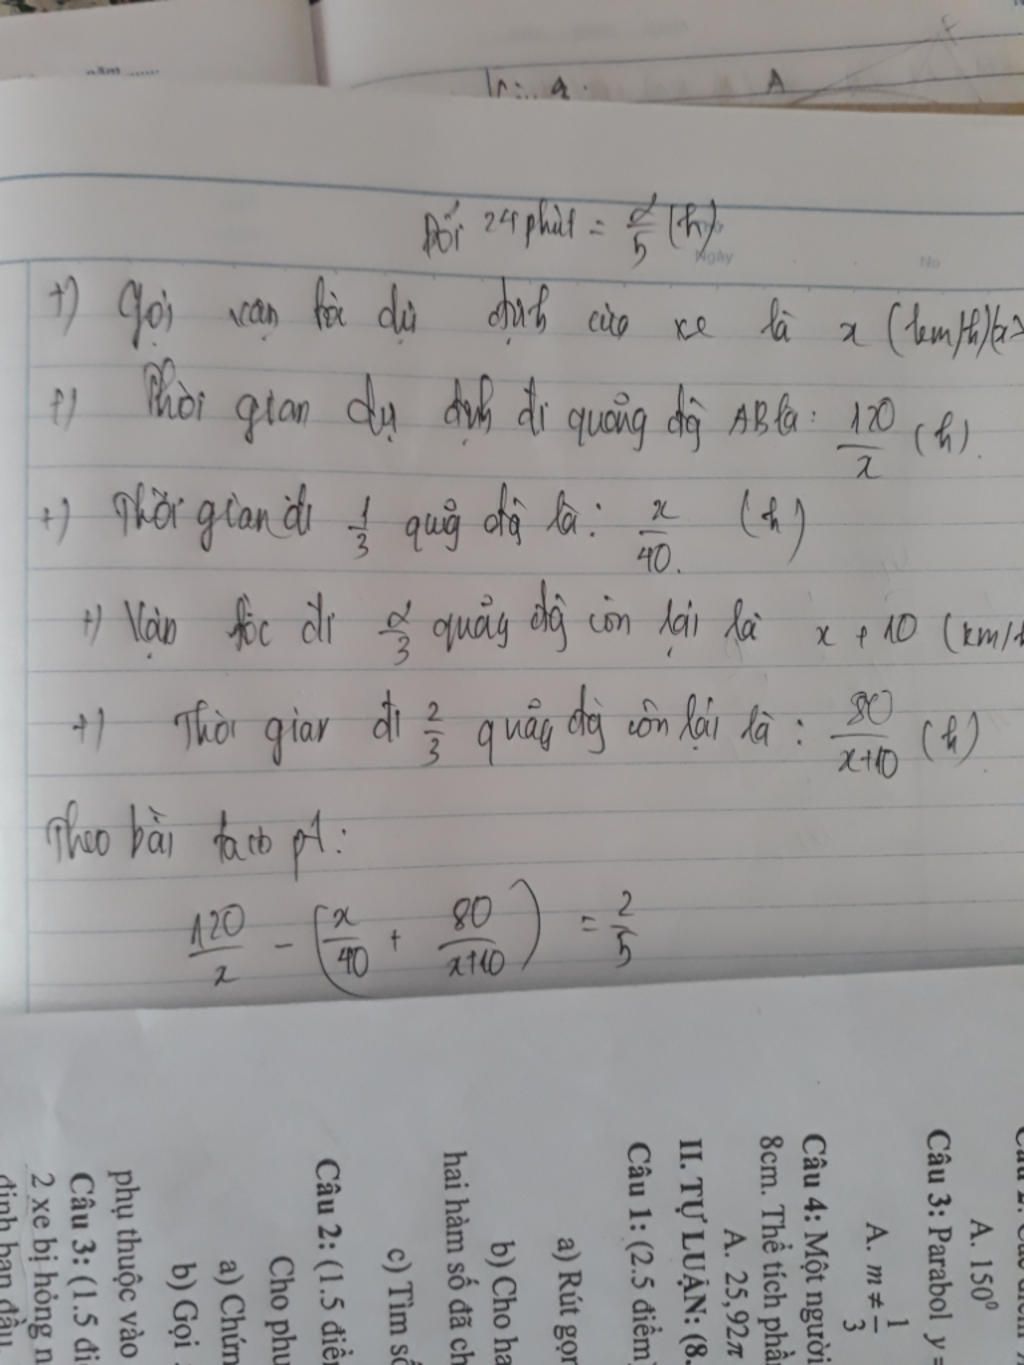 năm ......
A
Đổi 24 phút = 2/5 (h)
Ngày
No
+) Gọi vận tốc dự định của xe là x (km/h)(x>
+) Thời gian dự định đi quãng độ AB là: 120/x (h).
+) Thời gian đi 1/3 quãg độ là: x/40. (h)
+) Vận tốc đi 2/3 quãng độ còn lại là x + 10 (km/h
+) Thời gian đi 2/3 quãng độ còn lại là: 80/x+10 (h)
Theo bài ta có pt:
120/x - (x/40 + 80/x+10) = 2/5
A. 150⁰
Câu 3: Parabol y
A. m ≠ 1/3
Câu 4: Một người
8cm. Thể tích phần
A. 25,92π
II. TỰ LUẬN: (8.
Câu 1: (2.5 điểm)
a) Rút gọn
b) Cho ha
hai hàm số đã ch
c) Tìm số
Câu 2: (1.5 điểm
Cho phu
a) Chứn
b) Gọi
phụ thuộc vào
Câu 3: (1.5 đi
2 xe bị hỏng n
định ban đầu.